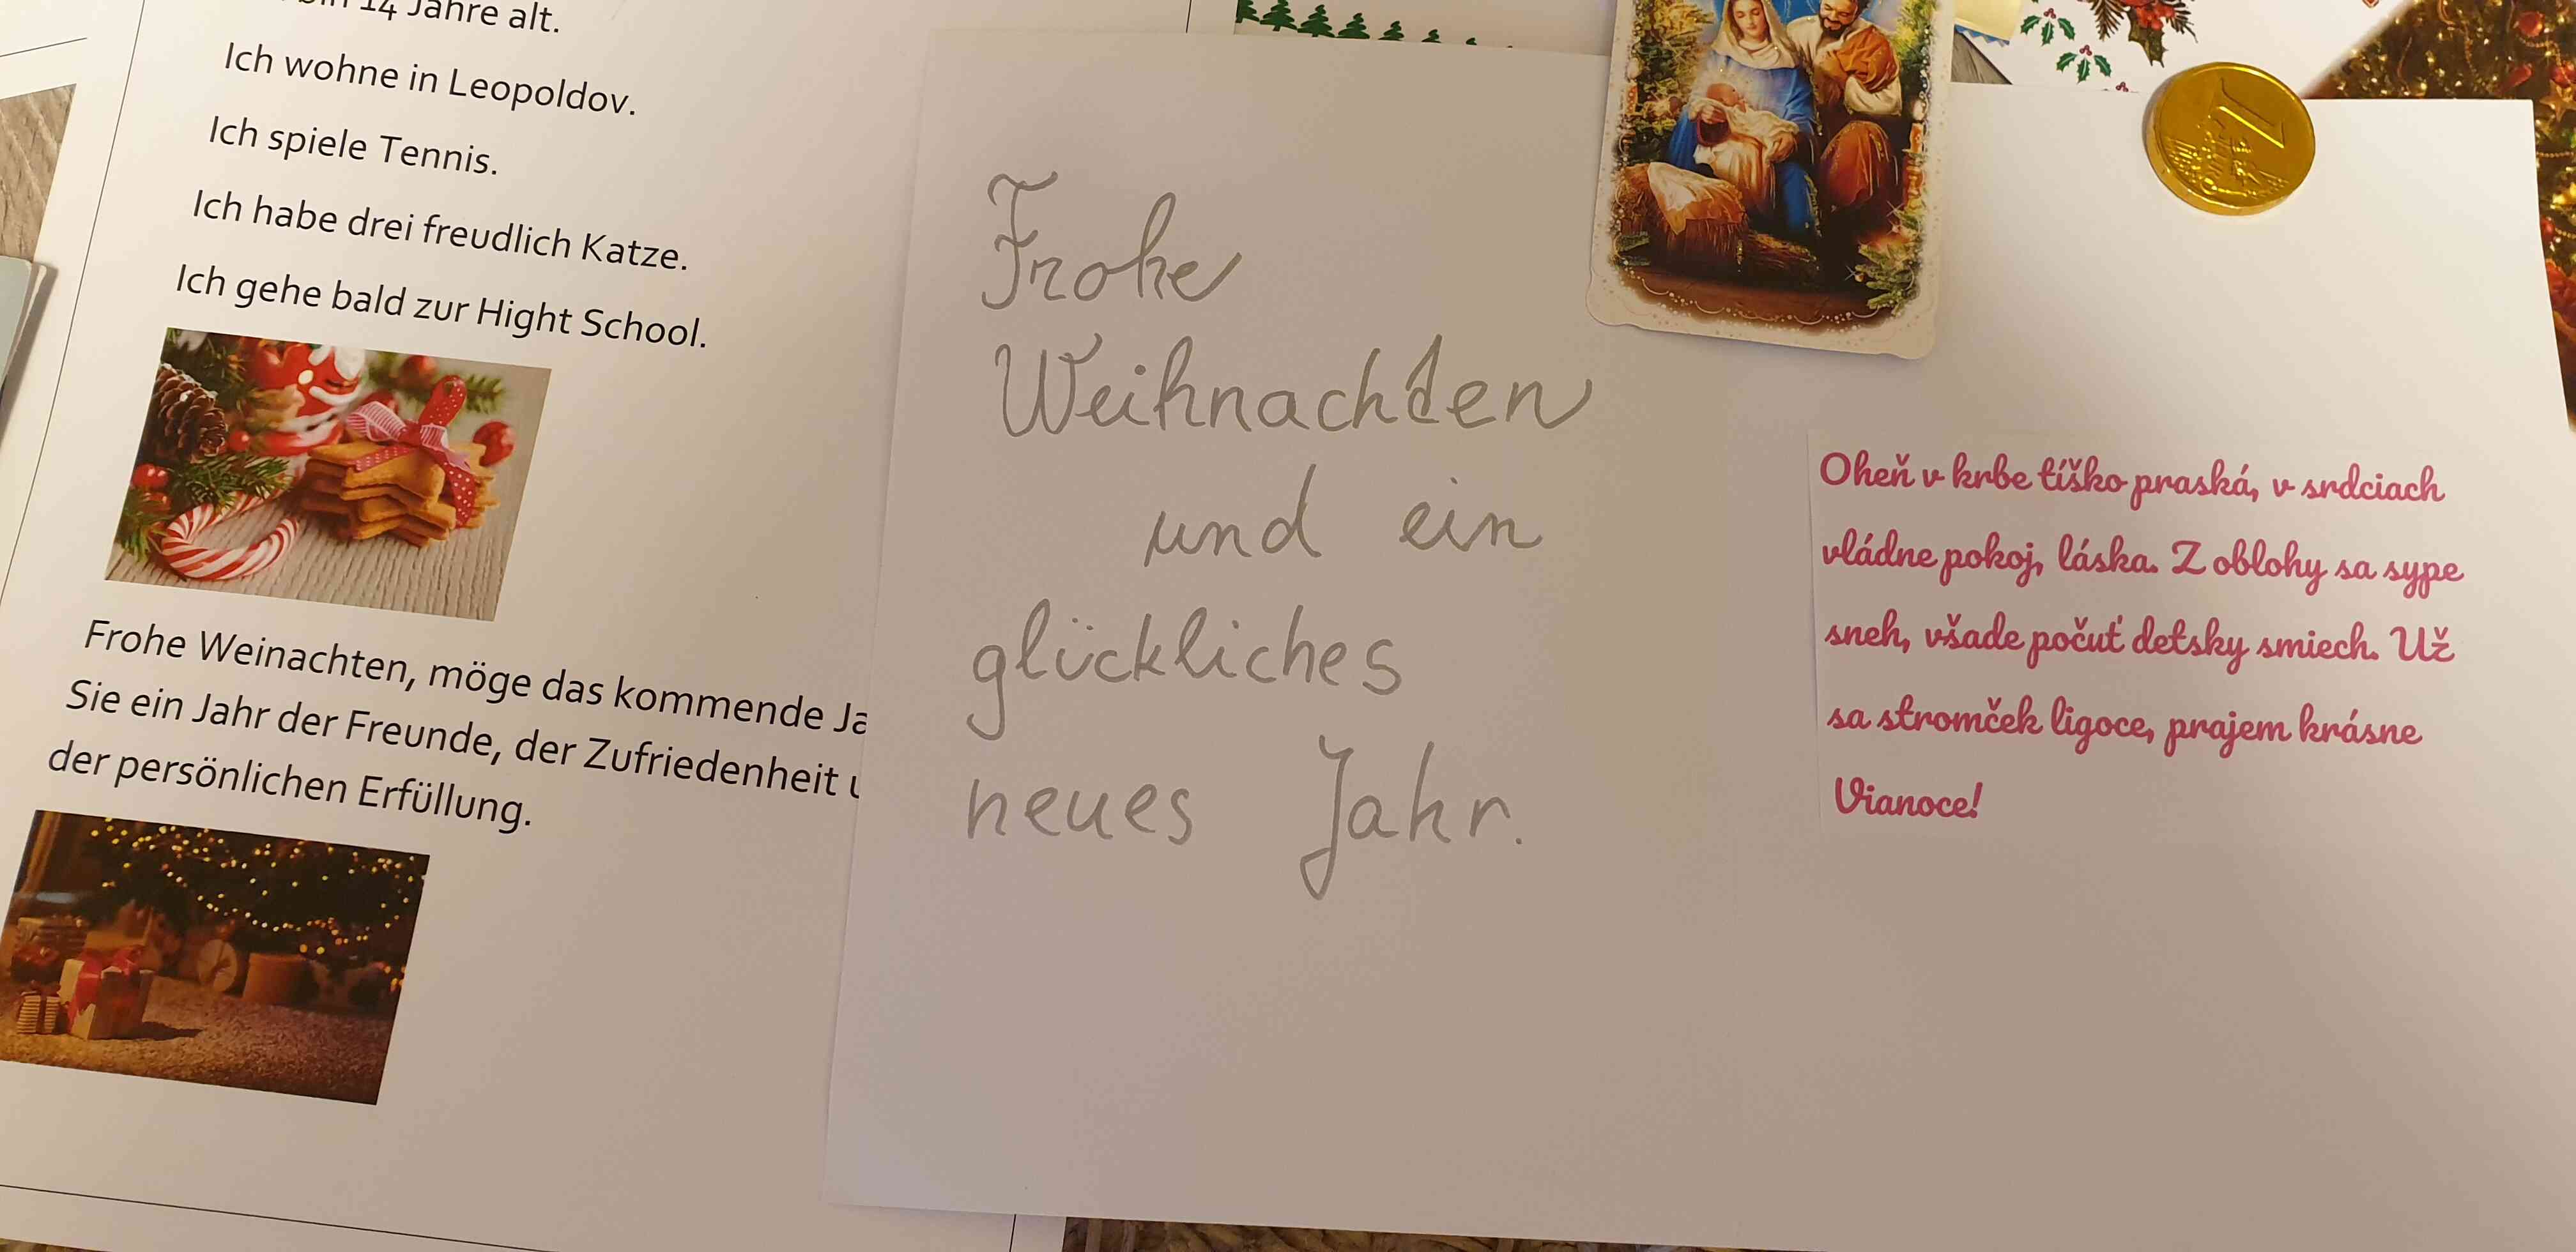 bin 14 Jahre alt.
Ich wohne in Leopoldov.
Ich spiele Tennis.
Ich habe drei freudlich Katze.
Ich gehe bald zur Hight School.
Frohe Weinachten, möge das kommende
Sie ein Jahr der Freunde, der Zufriedenheit
der persönlichen Erfüllung.
Frohe
Weihnachten
und ein
glückliches
neues Jahr.
1
Oheň v krbe tíško praská, v srdciach
vládne pokoj, láska. Z oblohy sa sype
sneh, všade počuť detsky smiech. Už
sa stromček ligoce, prajem krásne
Vianoce!